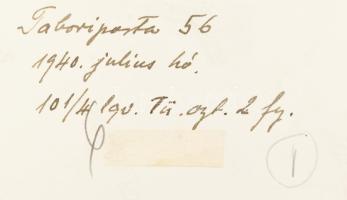 Taboriposta 56
1940. julius hó.
101/4 lgv. Tü. oszt. 2 fg.
1